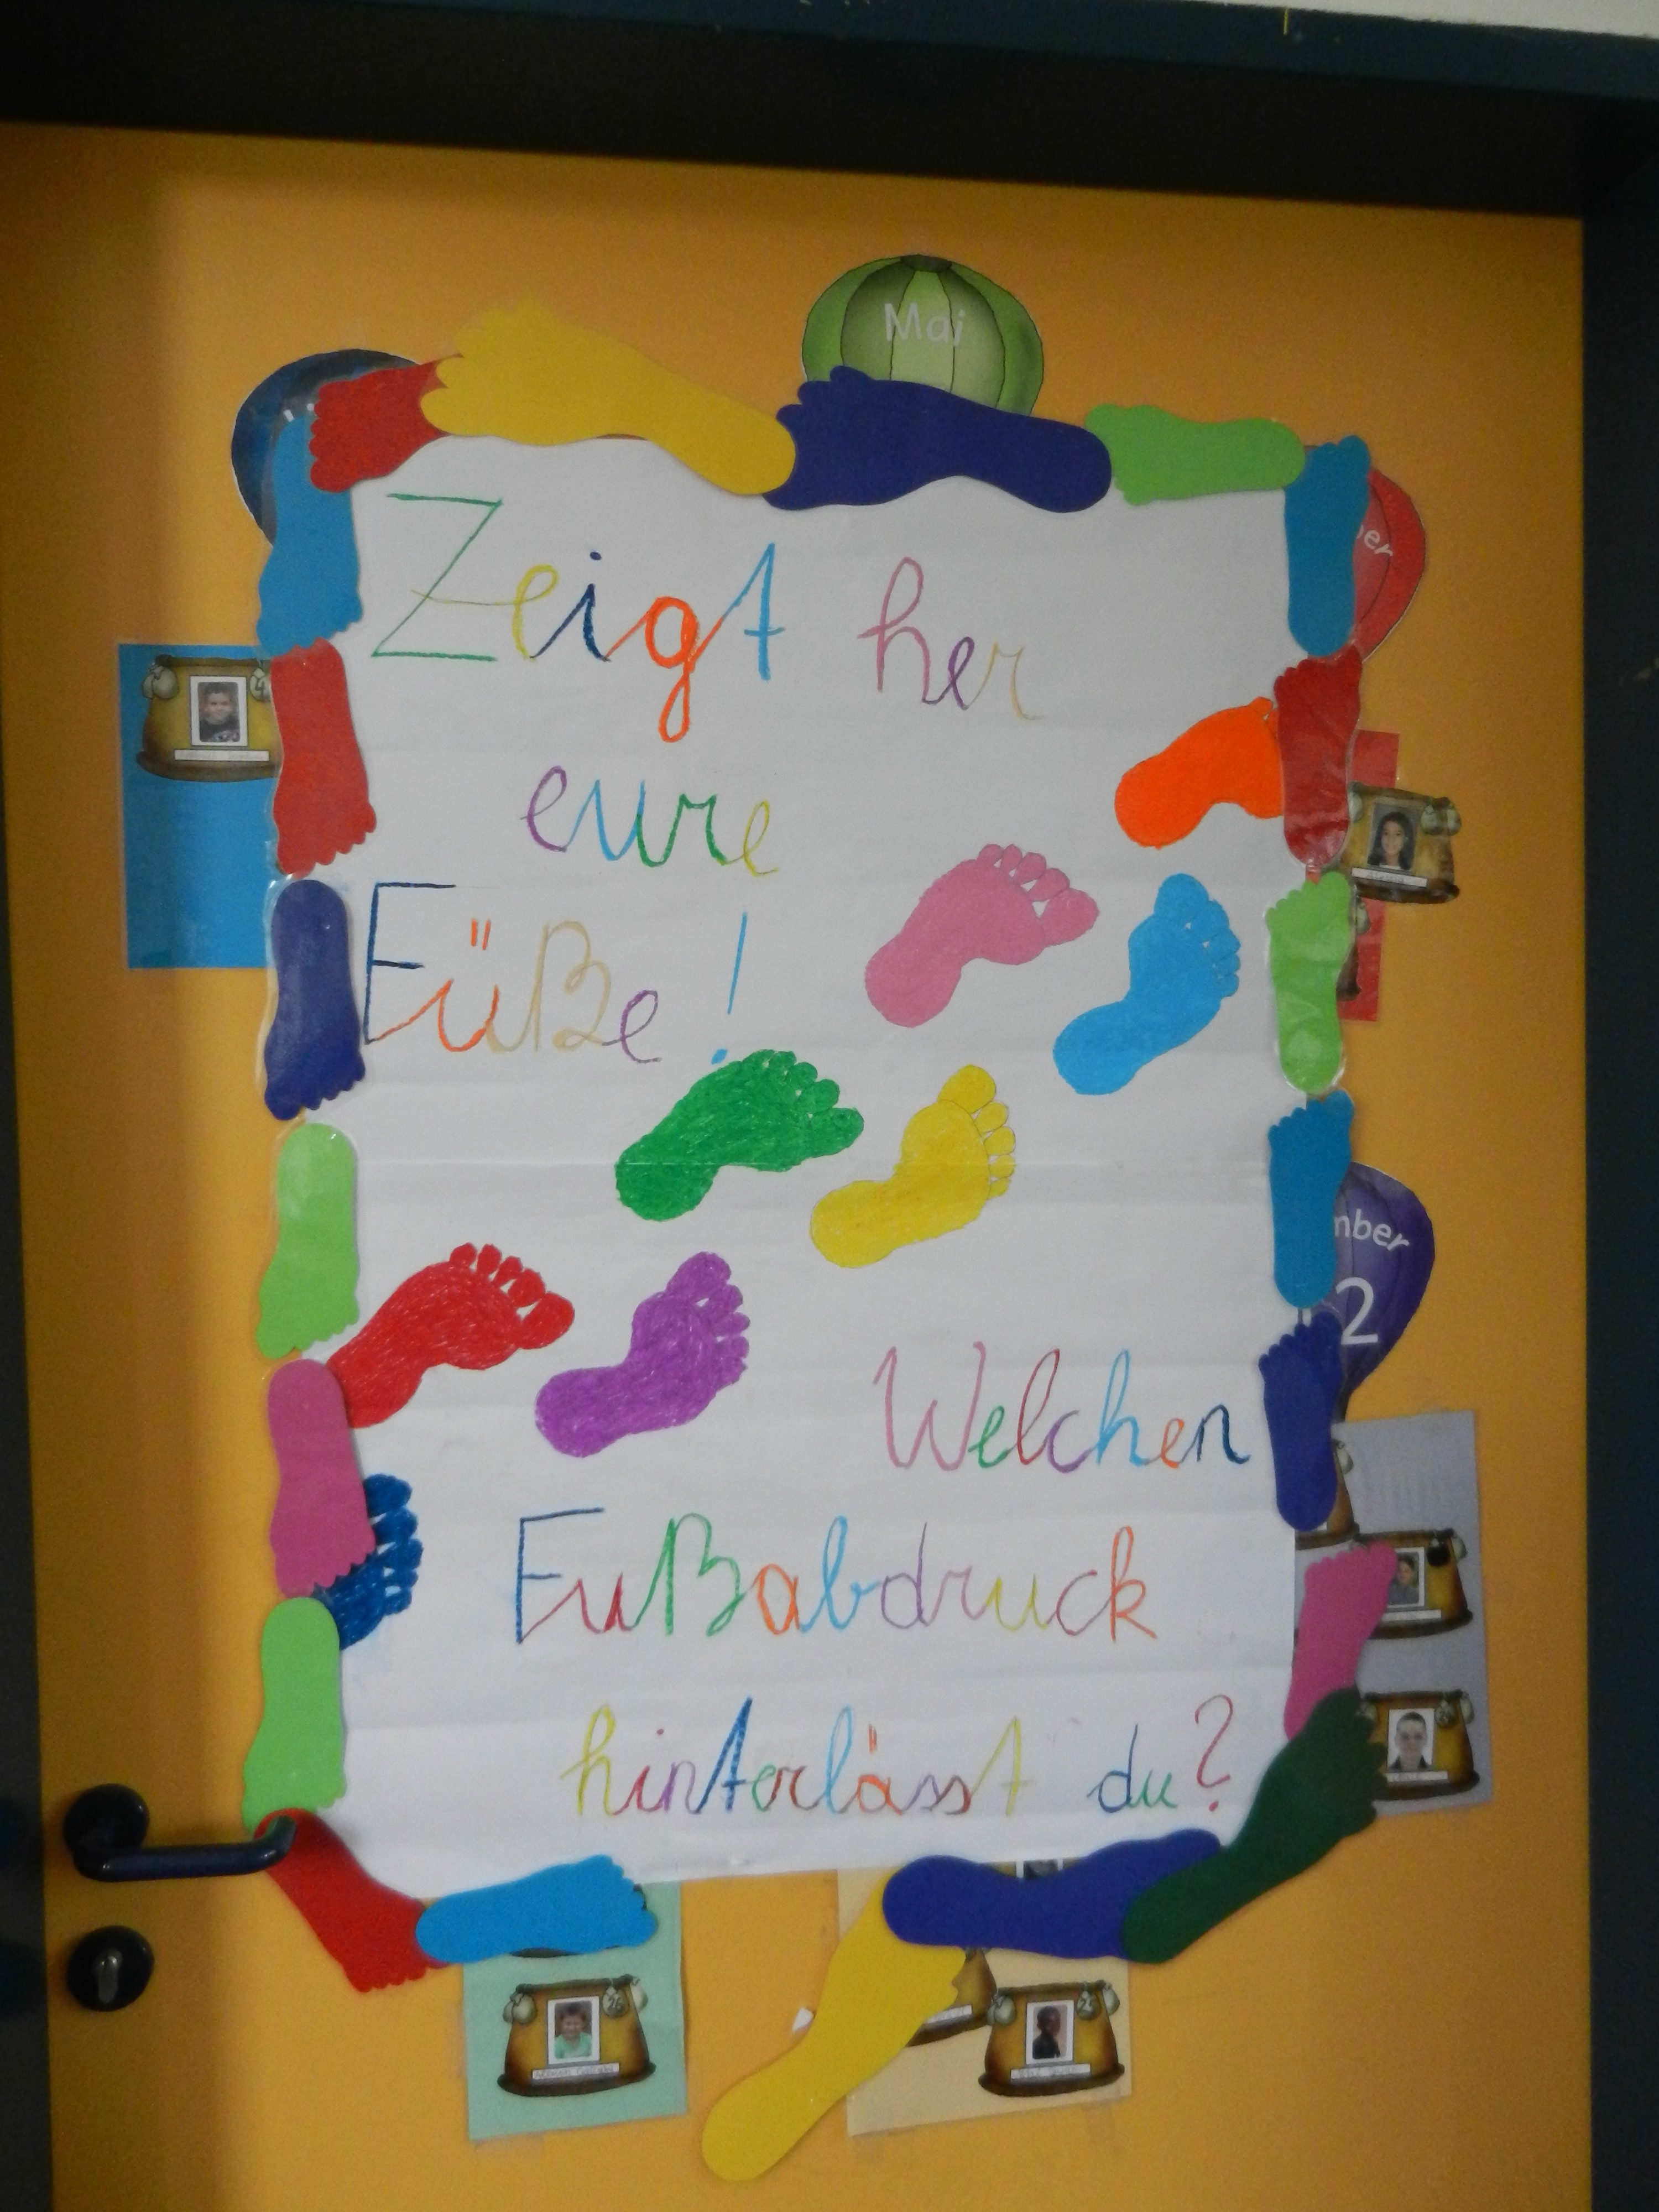 Mai
Zeigt her
eure
Füße!
mber
2
Welchen
Fußabdruck
hinterlässt du?
26
25